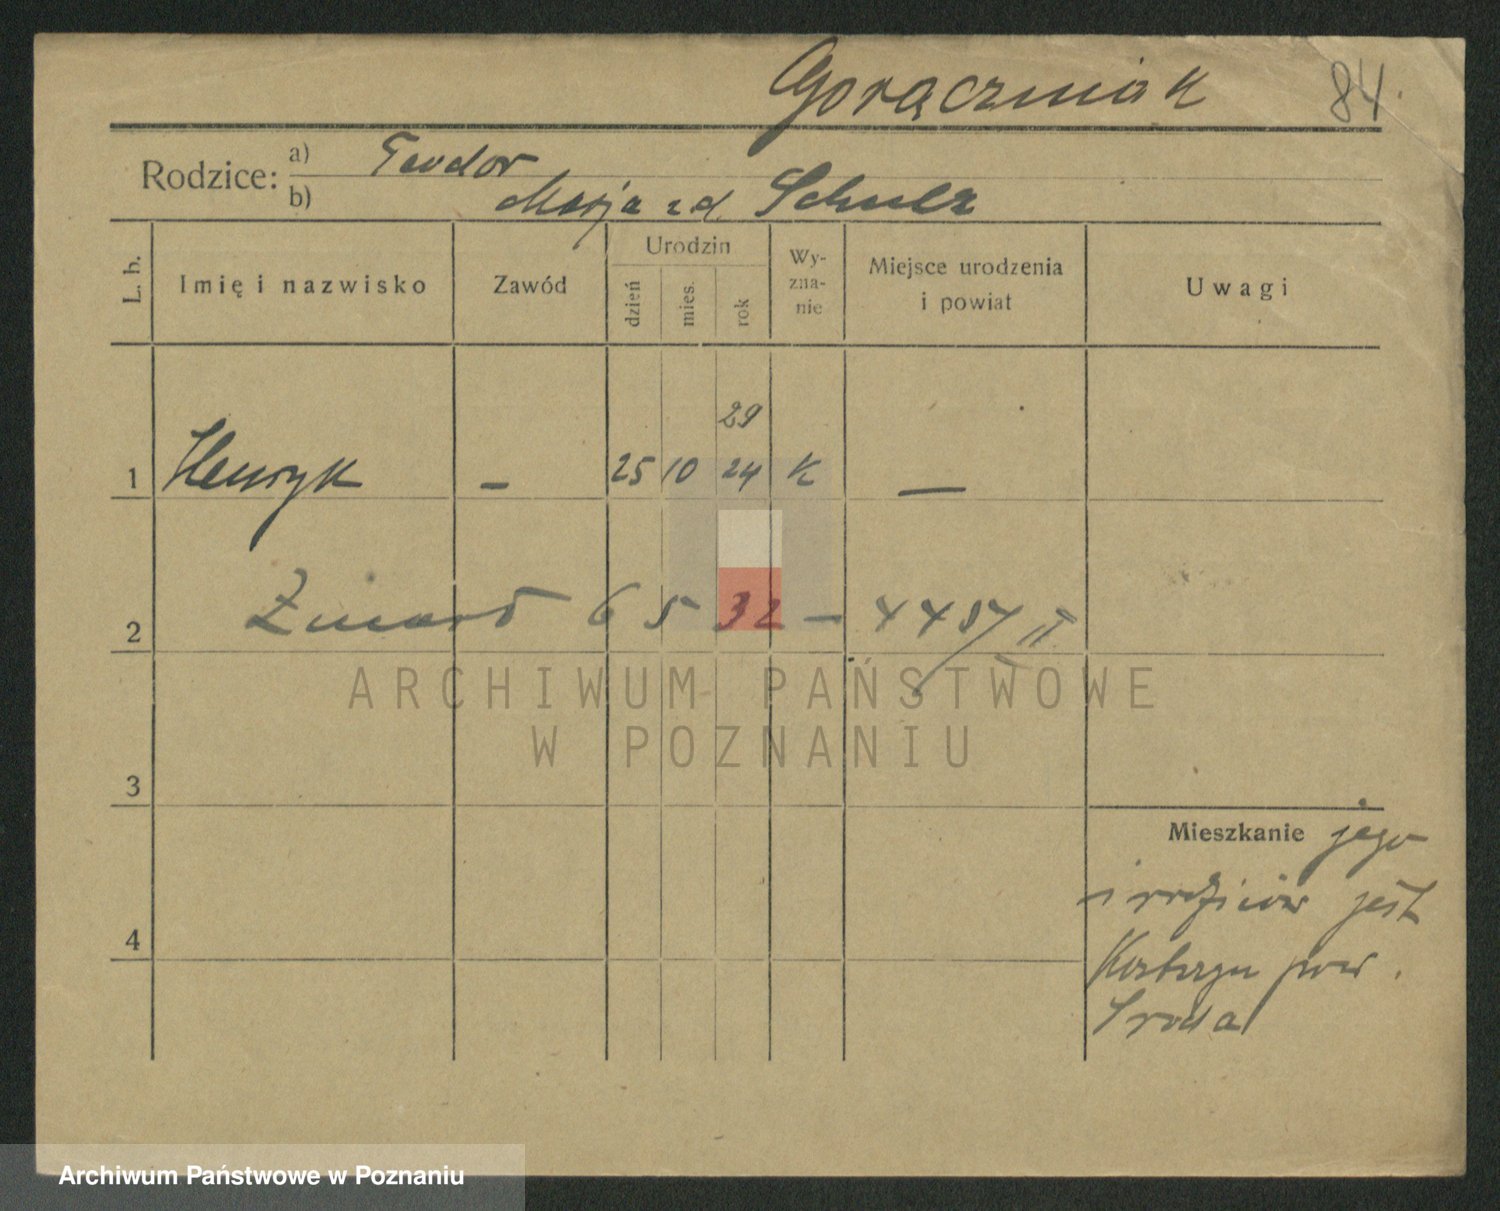 Gorączniak 84
Rodzice: a) Teodor
b) Marja z d. Schulz
L. b. Imię i nazwisko Zawód Urodzin dzień mies. rok Wy-zna-nie Miejsce urodzenia i powiat Uwagi
29
1 Henryk – 25 10 24 K —
2 Zmarł 6 5 32 – 4487/II
ARCHIWUM PAŃSTWOWE
W POZNANIU
3
Mieszkanie jego
i rodziców jest
4
pow.
Sroda
Archiwum Państwowe w Poznaniu